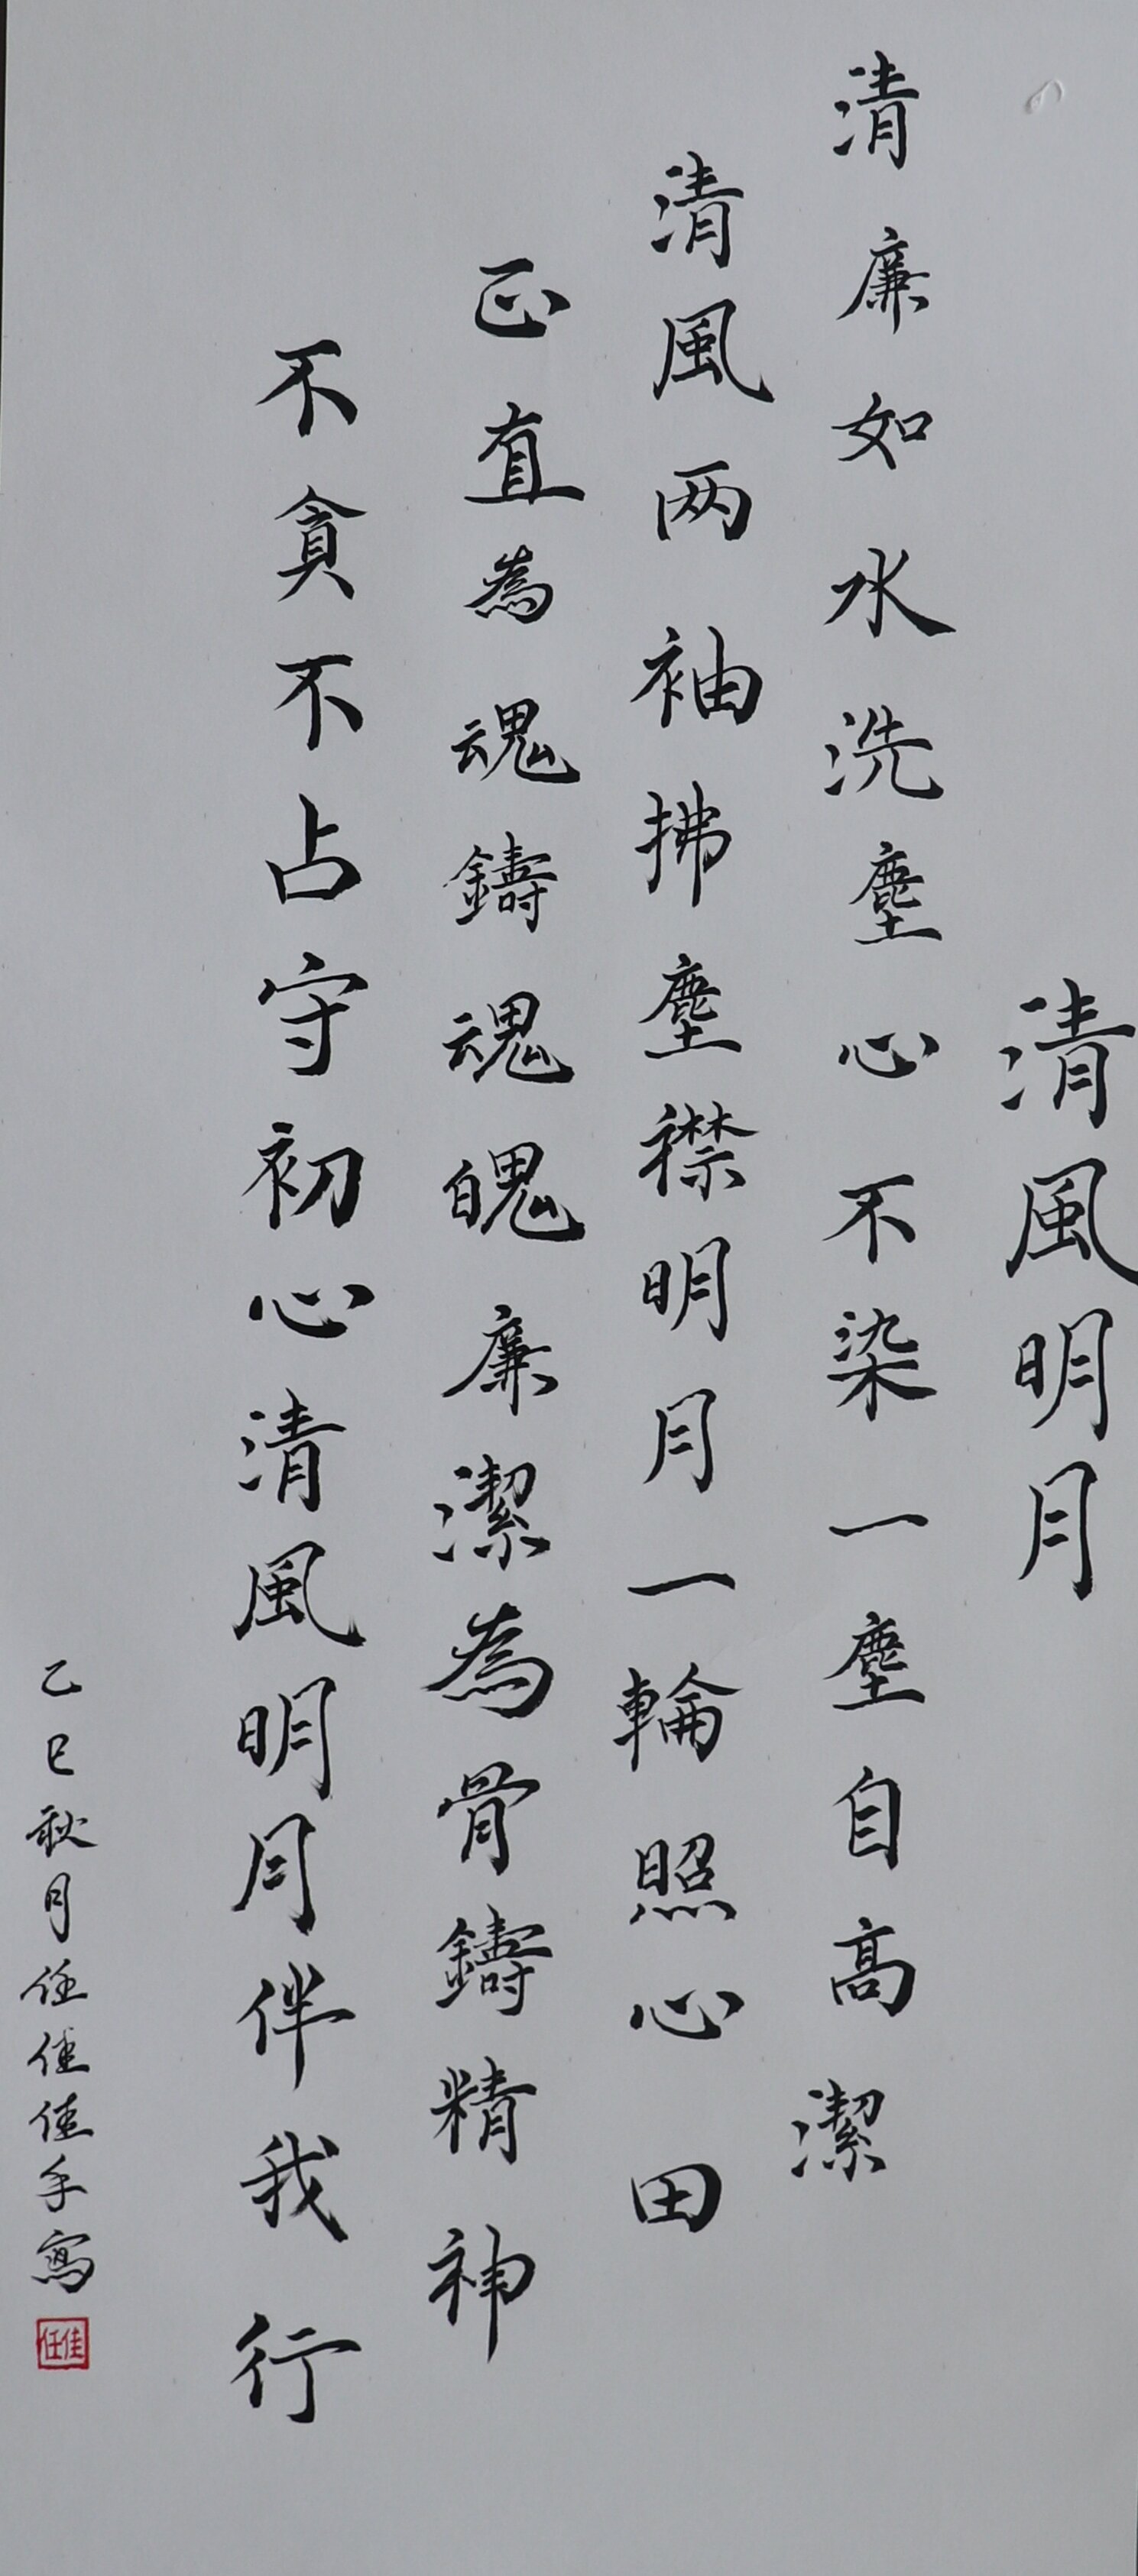 清風明月
清廉如水洗塵心不染一塵自高潔
清風两袖拂塵襟明月一輪照心田
正直為魂鑄魂魄廉潔為骨鑄精神
不貪不占守初心清風明月伴我行
乙巳秋月任佳佳手寫
任佳